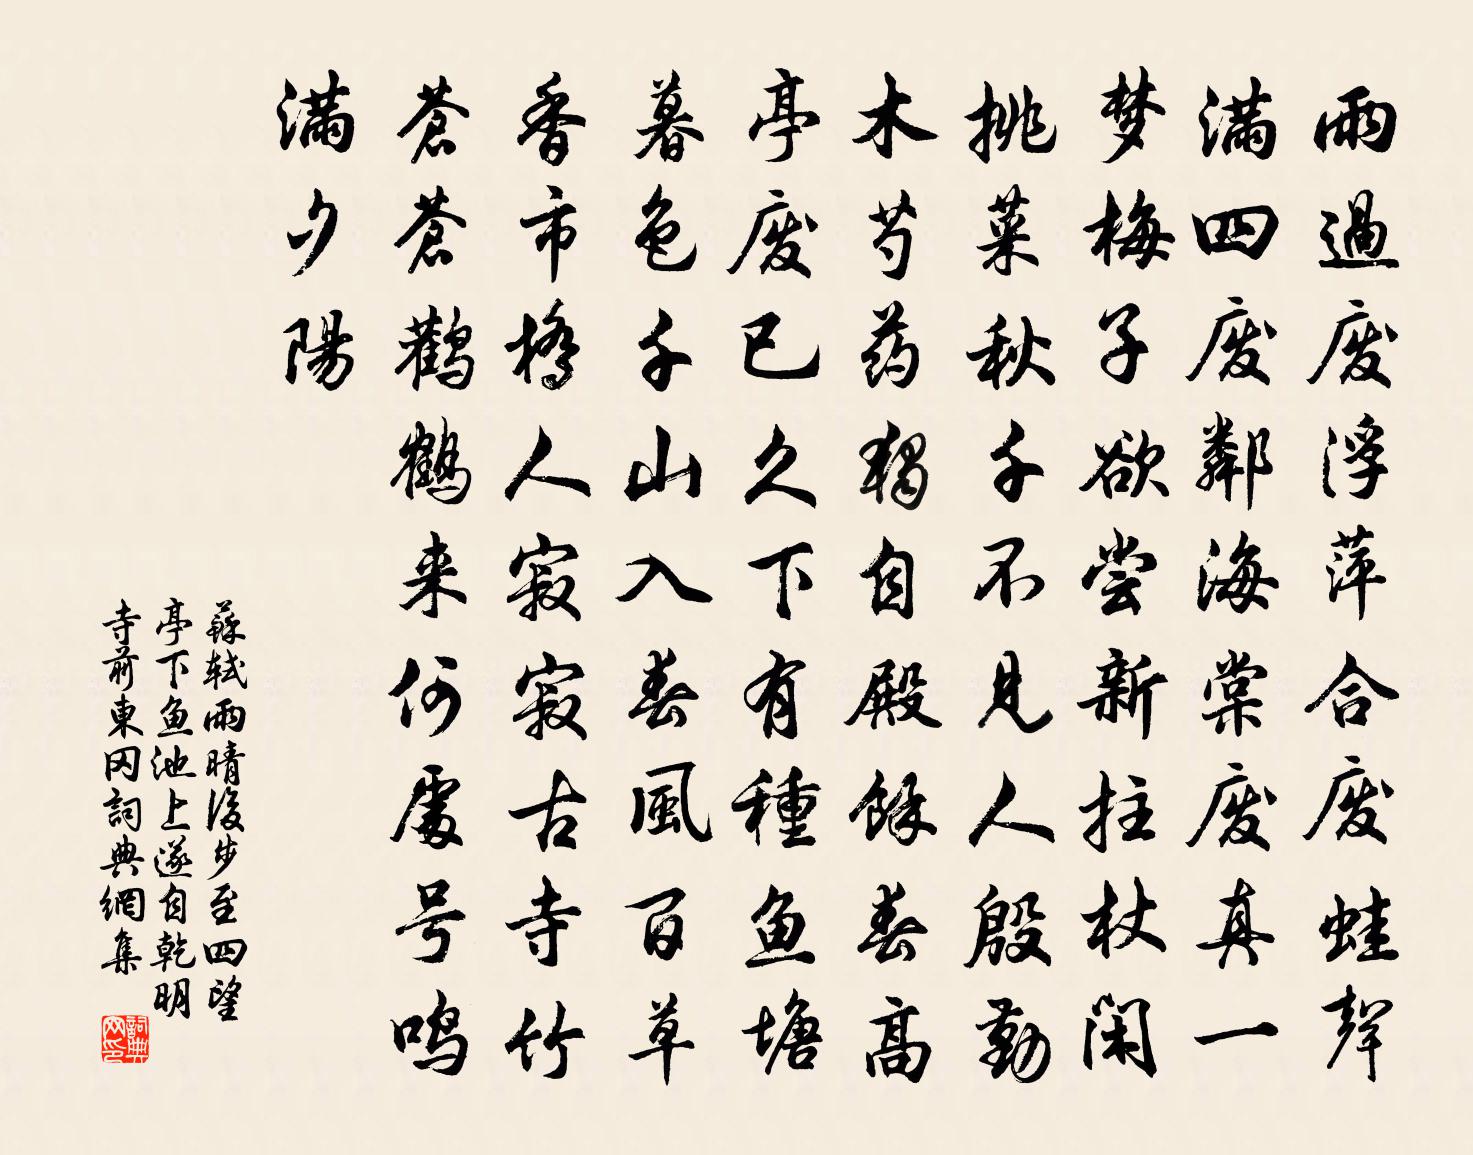 雨過废浮萍合废蛙聲
滿四废鄰海棠废真一
梦梅子欲尝新拄杖閑
挑菜秋千不見人殷勤
木芍药獨自殿餘春高
亭废已久下有種鱼塘
暮色千山入春風百草
香市橋人寂寂古寺竹
蒼蒼鸛鶴来何處号鸣
滿夕陽
蘇軾雨晴後步至四望
亭下鱼池上遂自乾明
寺前東冈詞典網集
詞典
网印